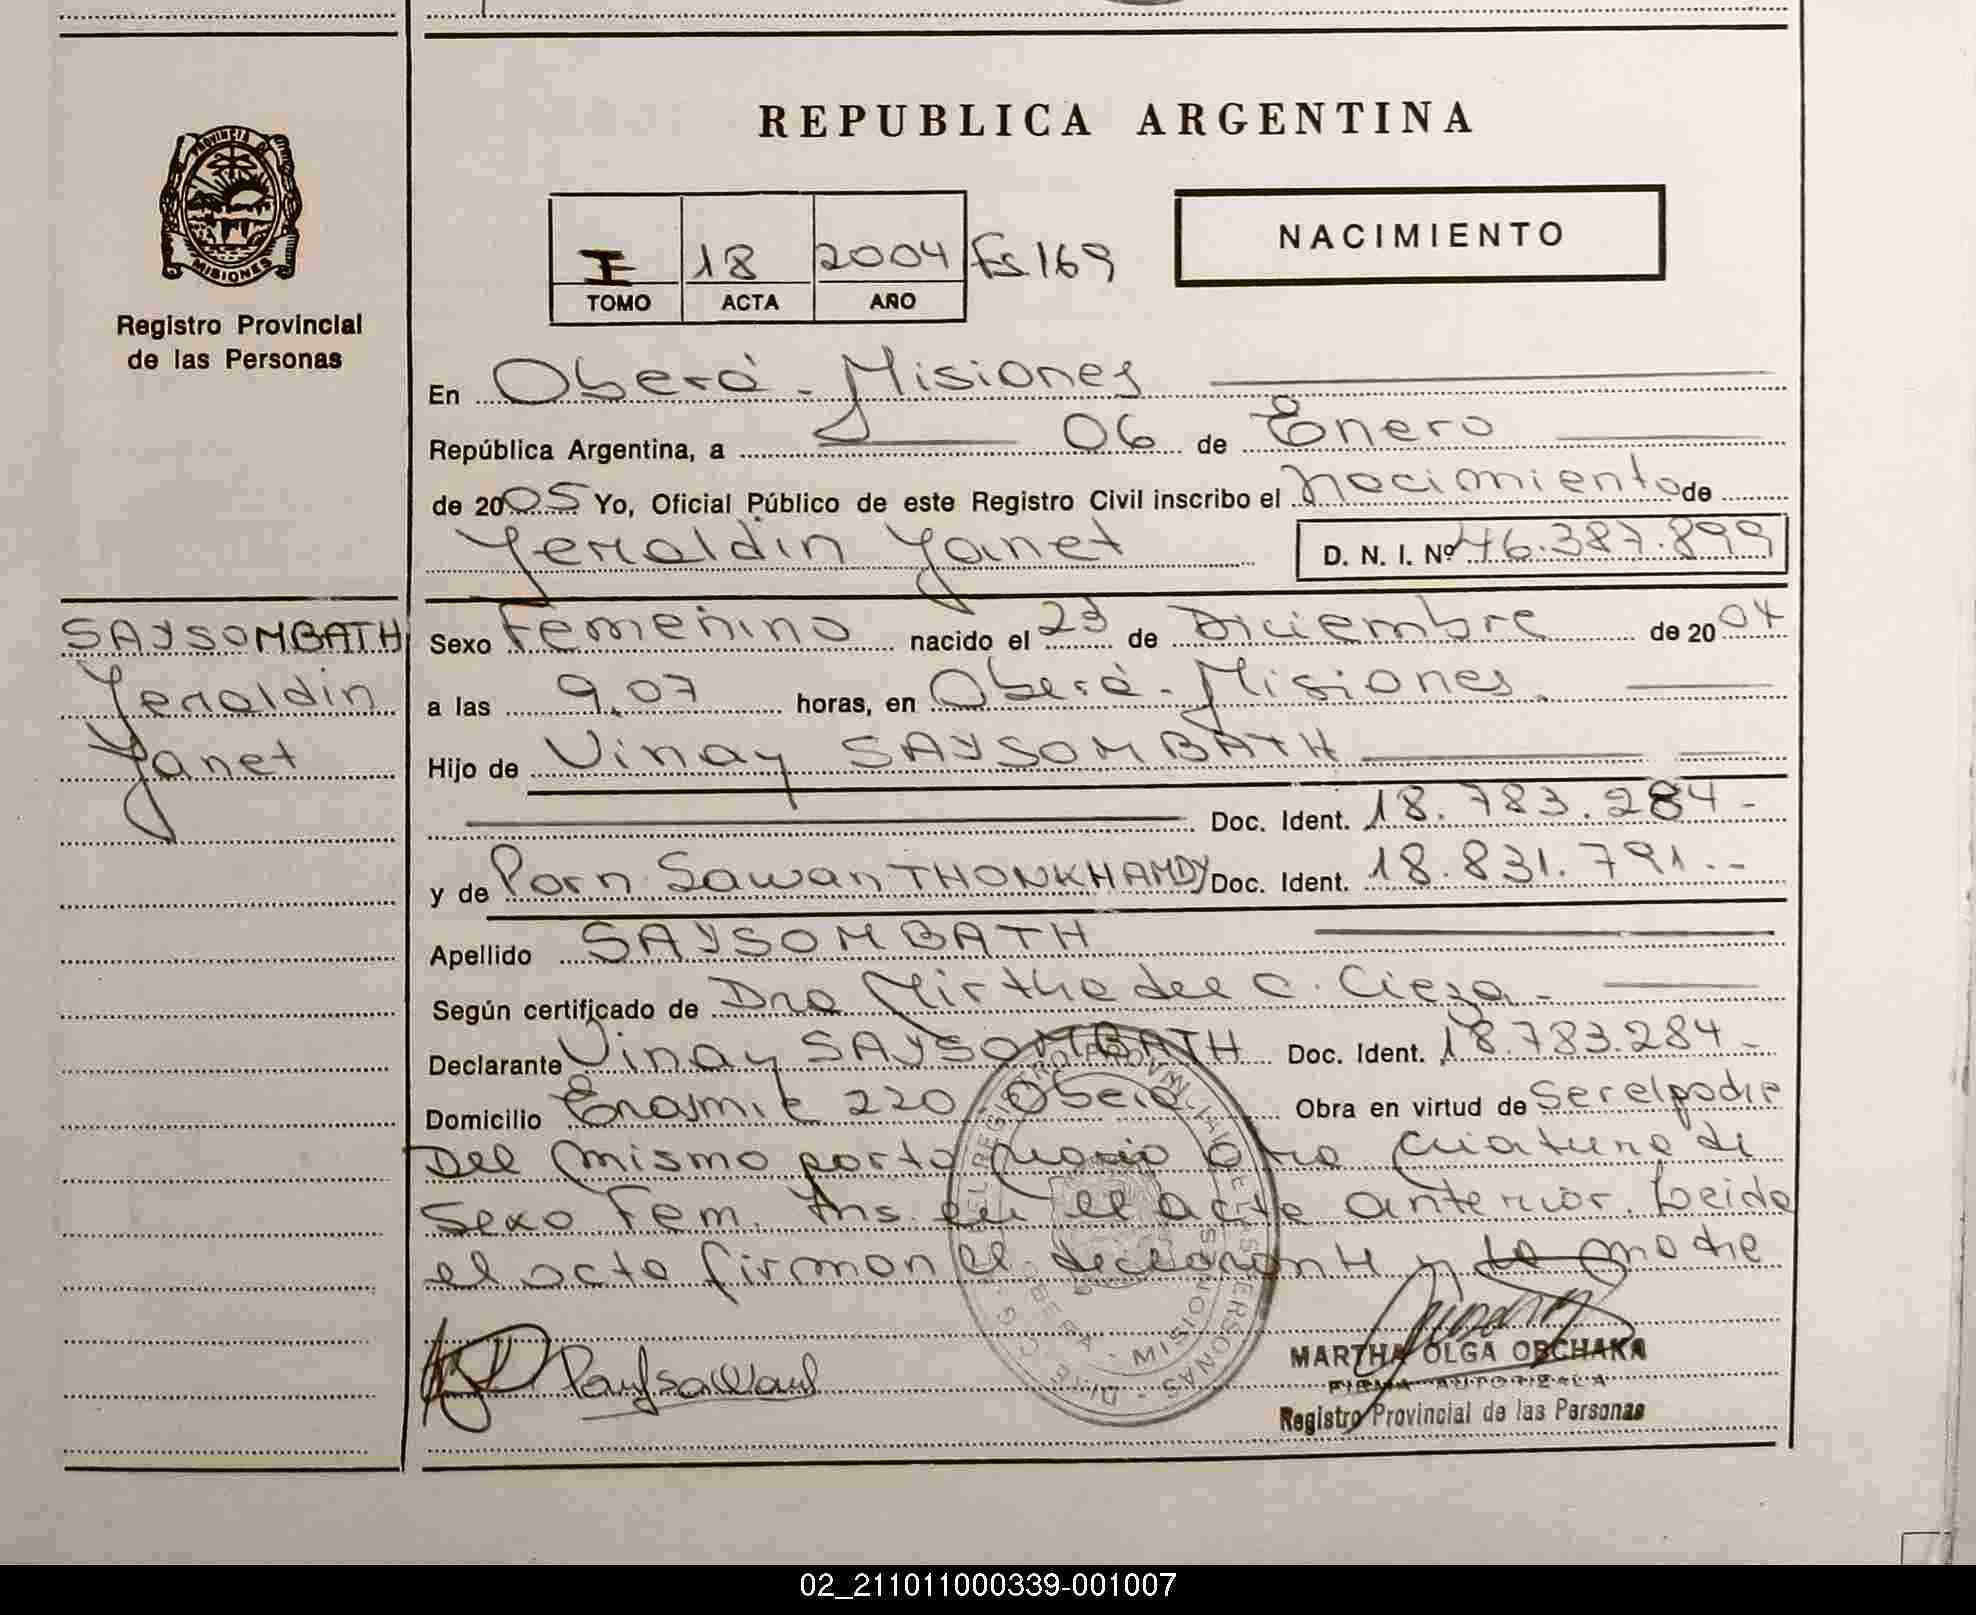 PROVINCIA DE
MISIONES
Registro Provincial
de las Personas
REPUBLICA ARGENTINA
I 18 2004 Fs 169
TOMO ACTA AÑO
NACIMIENTO
En Oberá - Misiones
República Argentina, a 06 de Enero
de 2005 Yo, Oficial Público de este Registro Civil inscribo el nacimiento de
Yeraldin Yanet D. N. I. Nº 46.387.899
SAYSOMBATH
Yeraldin
Yanet
Sexo Femenino nacido el 23 de Diciembre de 2004
a las 9,07 horas, en Oberá - Misiones.
Hijo de Vinay SAYSOMBATH
Doc. Ident. 18.783.284 -
y de Porn Sawan THONKHAMDY Doc. Ident. 18.831.791.--
Apellido SAYSOMBATH
Según certificado de Dra Mirtha del C. Cieza -
Declarante Vinay SAYSOMBATH Doc. Ident. 18.783.284 -
Domicilio 220 Oberá Obra en virtud de Ser el padre
Del mismo parto nació otra criatura de
sexo Fem. Ins. en el acta anterior. Leida
el acta firman el declarante y la madre
MARTHA OLGA OBCHAKA
FIRMA AUTORIZADA
Registro Provincial de las Personas
02_211011000339-001007